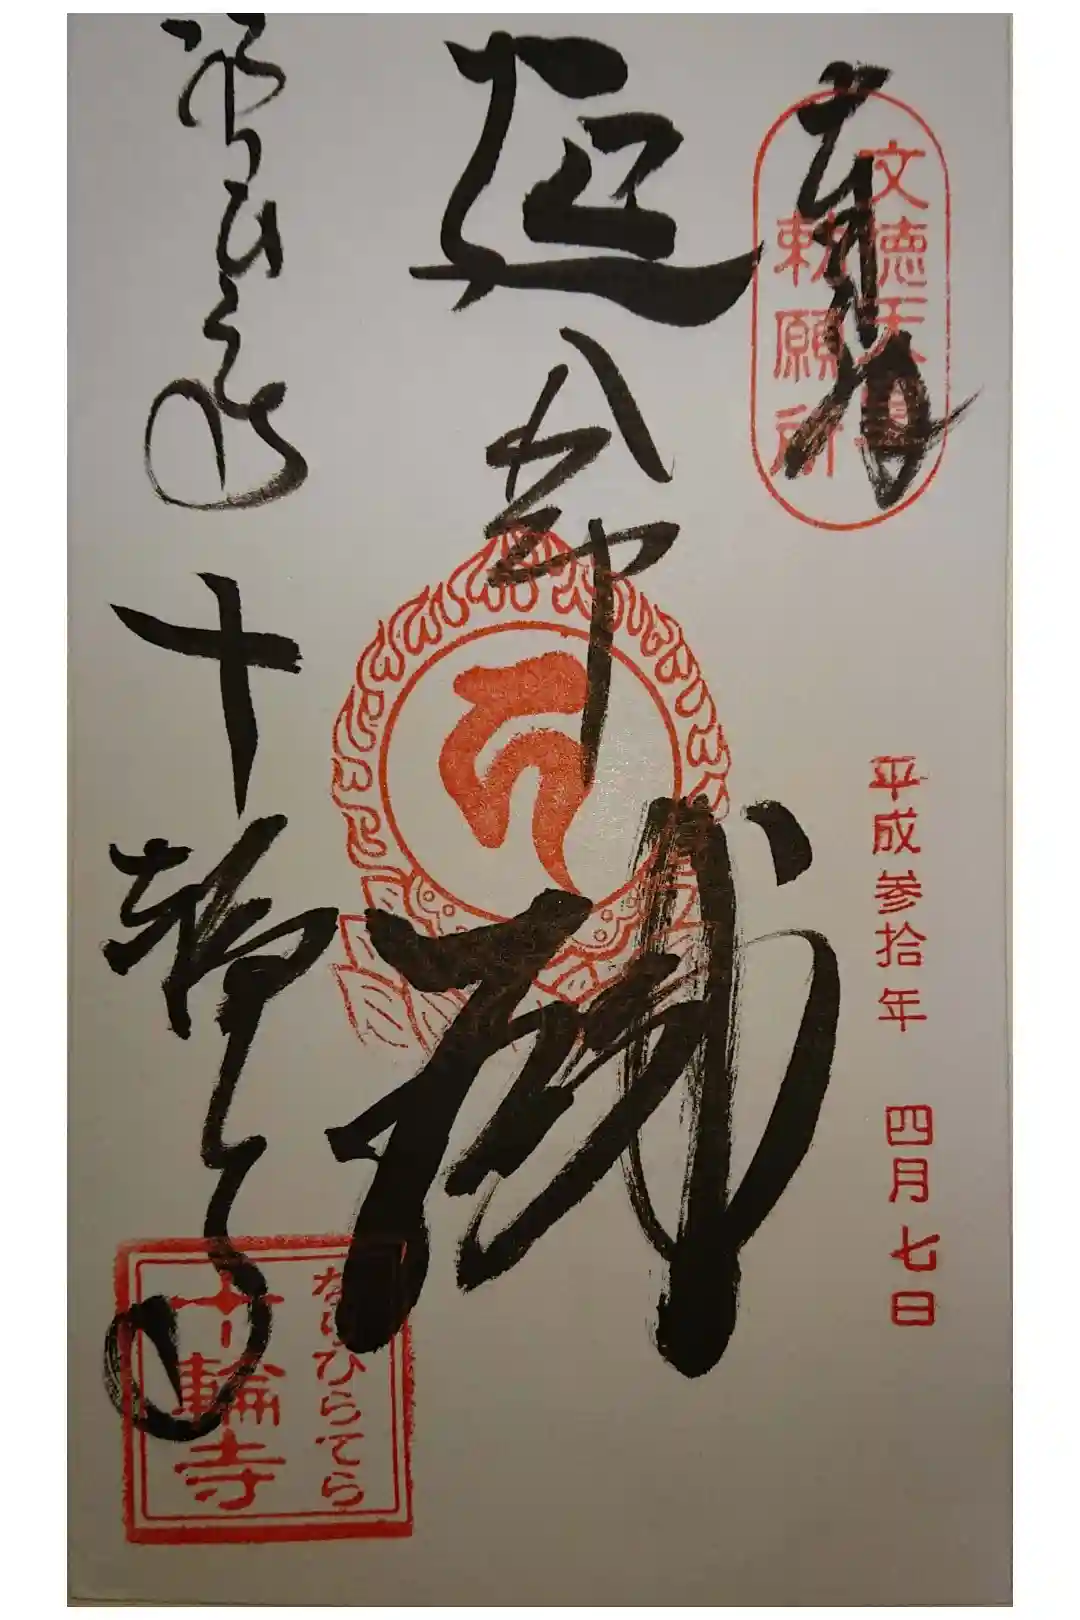 奉拝
文徳天皇
勅願所
平成参拾年 四月七日
延命地蔵
十輪寺
なりひらてら
十輪寺